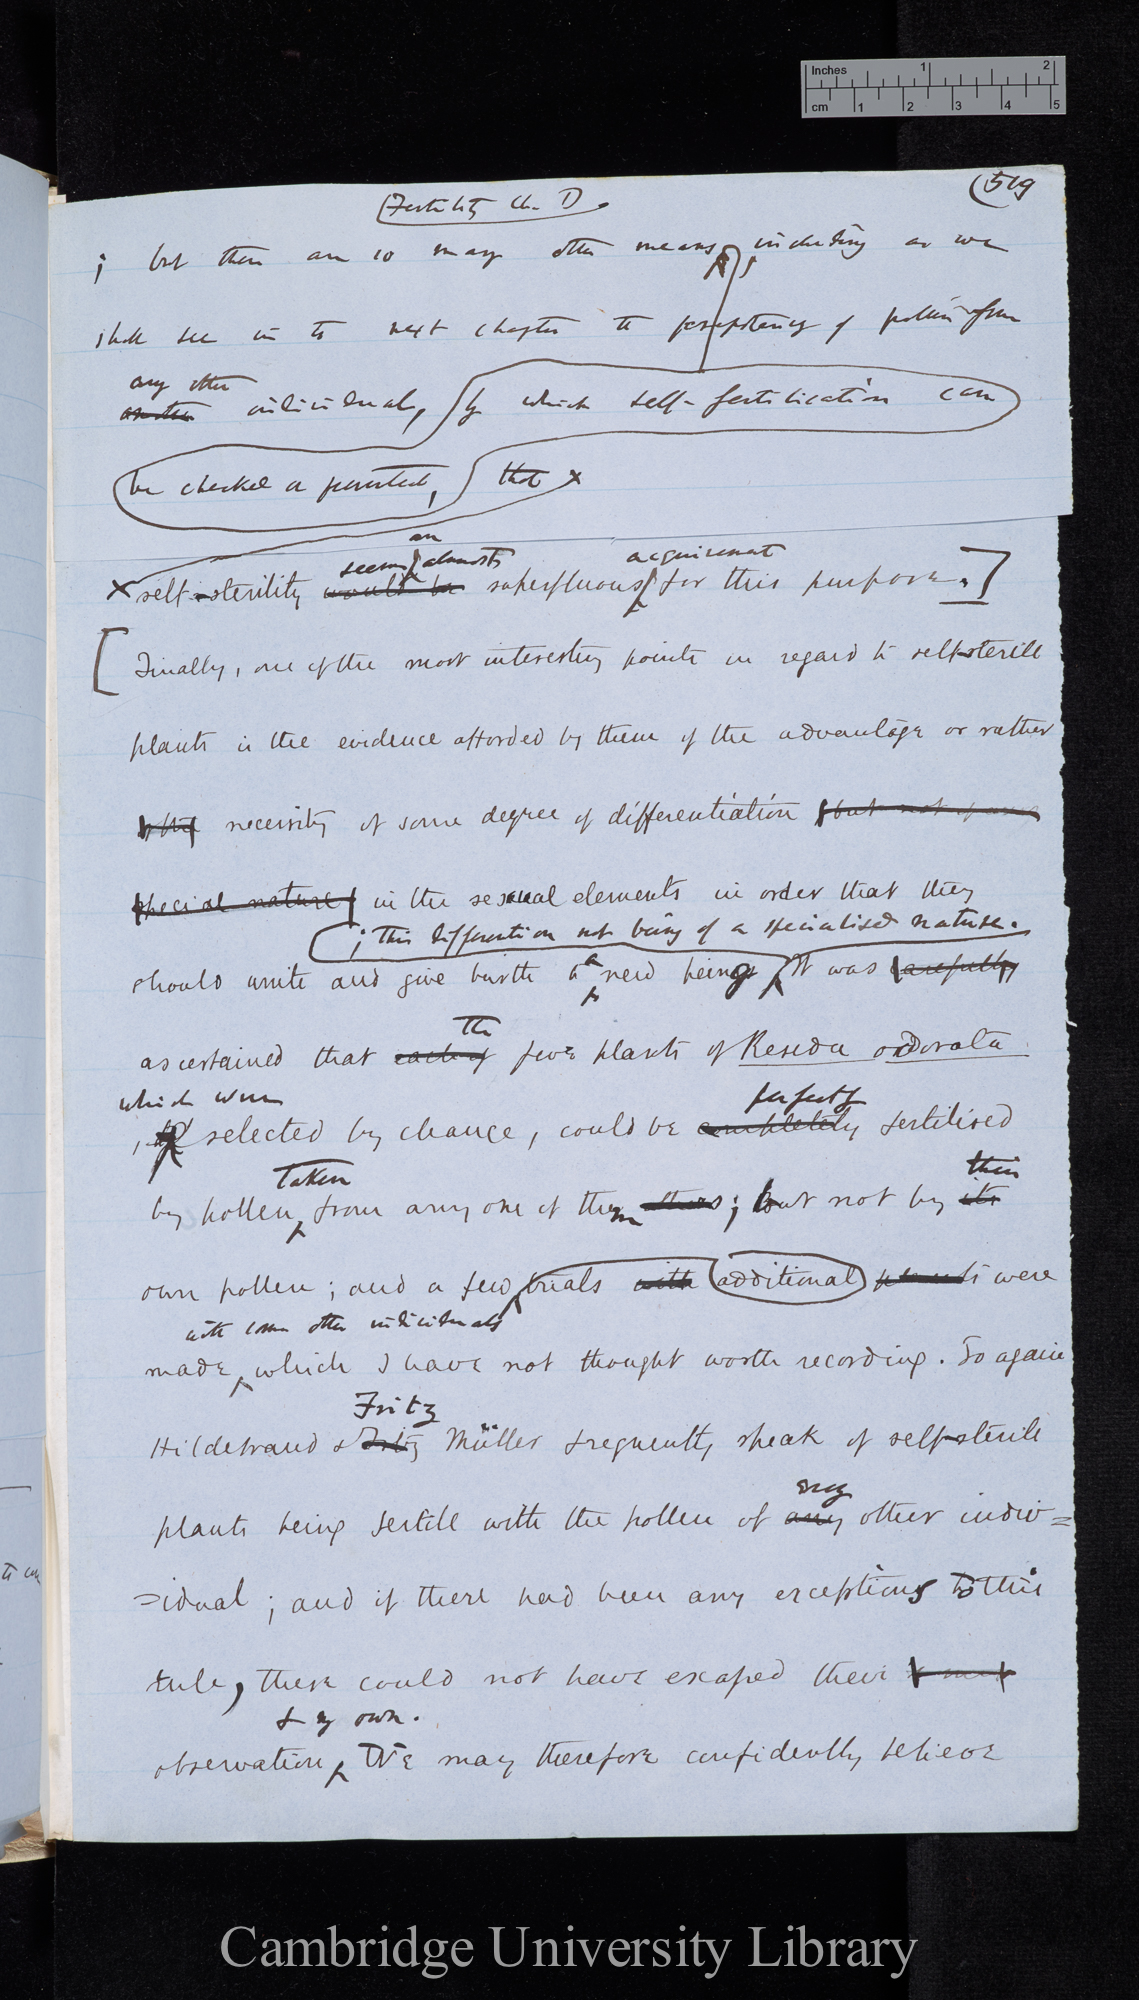 Inches 1 2
cm 1 2 3 4 5
(519
Fertility Ch. D.
; but there are so many other means, including as we
shall see in the next chapter the prepotency of pollen from
any other
another individual, by which self-fertilisation can
be checked or prevented, that x
an
seems almost acquirement
x self-sterility would be superfluous for this purpose.]
[Finally, one of the most interesting points in regard to self-sterile
plants is the evidence afforded by them of the advantage or rather
necessity of some degree of differentiation but not of any
special nature in the sexual elements in order that they
; this differentiation not being of a specialised nature.
should unite and give birth to a new being It was carefully
the
ascertained that each of five plants of Reseda odorata
which were perfectly
, selected by chance, could be completely fertilised
taken their
by pollen from any one of them others; but not by its
own pollen; and a few trials with additional plants were
with some other individuals
made, which I have not thought worth recording. So again
Fritz
Hildebrand & Fritz Müller frequently speak of self-sterile
any
plants being fertile with the pollen of any other indiv=
=idual; and if there had been any exceptions to this
rule, these could not have escaped their
& my own.
observation, We may therefore confidently believe
Cambridge University Library